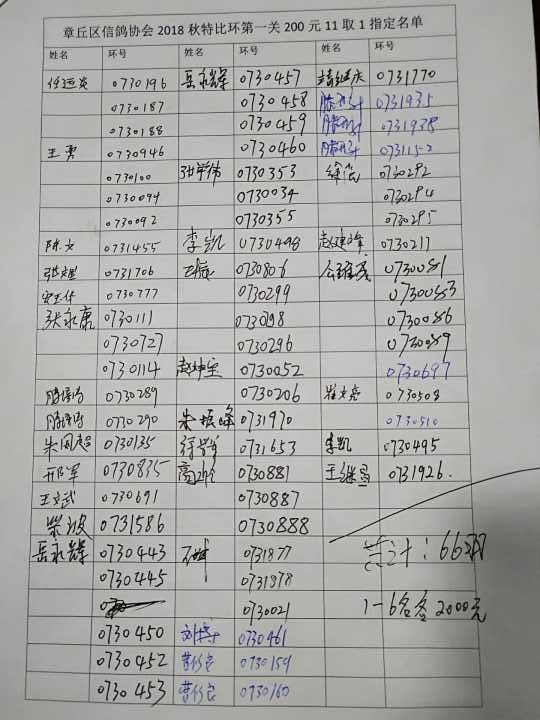 章丘区信鸽协会 2018 秋特比环第一关 200 元 11 取 1 指定名单
姓名 环号 姓名 环号 姓名 环号
任运炎 0730196 岳永辉 0730457 靖继庆 0731770
0730187 0730458 0731935
0730188 0730459 0731938
王勇 0730946 0730460 0731152
0730100 张学伟 0730353 0730292
0730094 0730034 0730294
0730092 0730355 0730295
陈文 0731455 李凯 0730498 赵建峰 0730217
0731706 0730806 0730081
0730777 0730299 0730083
张永康 0730111 0730298 0730086
0730727 0730296 0730089
0730114 0730052 0730697
0730289 0730206 崔文亮 0730508
0730290 朱振峰 0731970 0730510
朱国超 0730135 0731653 李凯 0730495
邢军 0730835 0730881 王继昌 0731926.
王立武 0730691 0730887
柴波 0731586 0730888
岳永辉 0730443 0731877 共计：66羽
0730445 0731878
0730021 1-6名各2000元
0730450 刘博 0730461
0730452 曹衍良 0730159
0730453 曹衍良 0730160